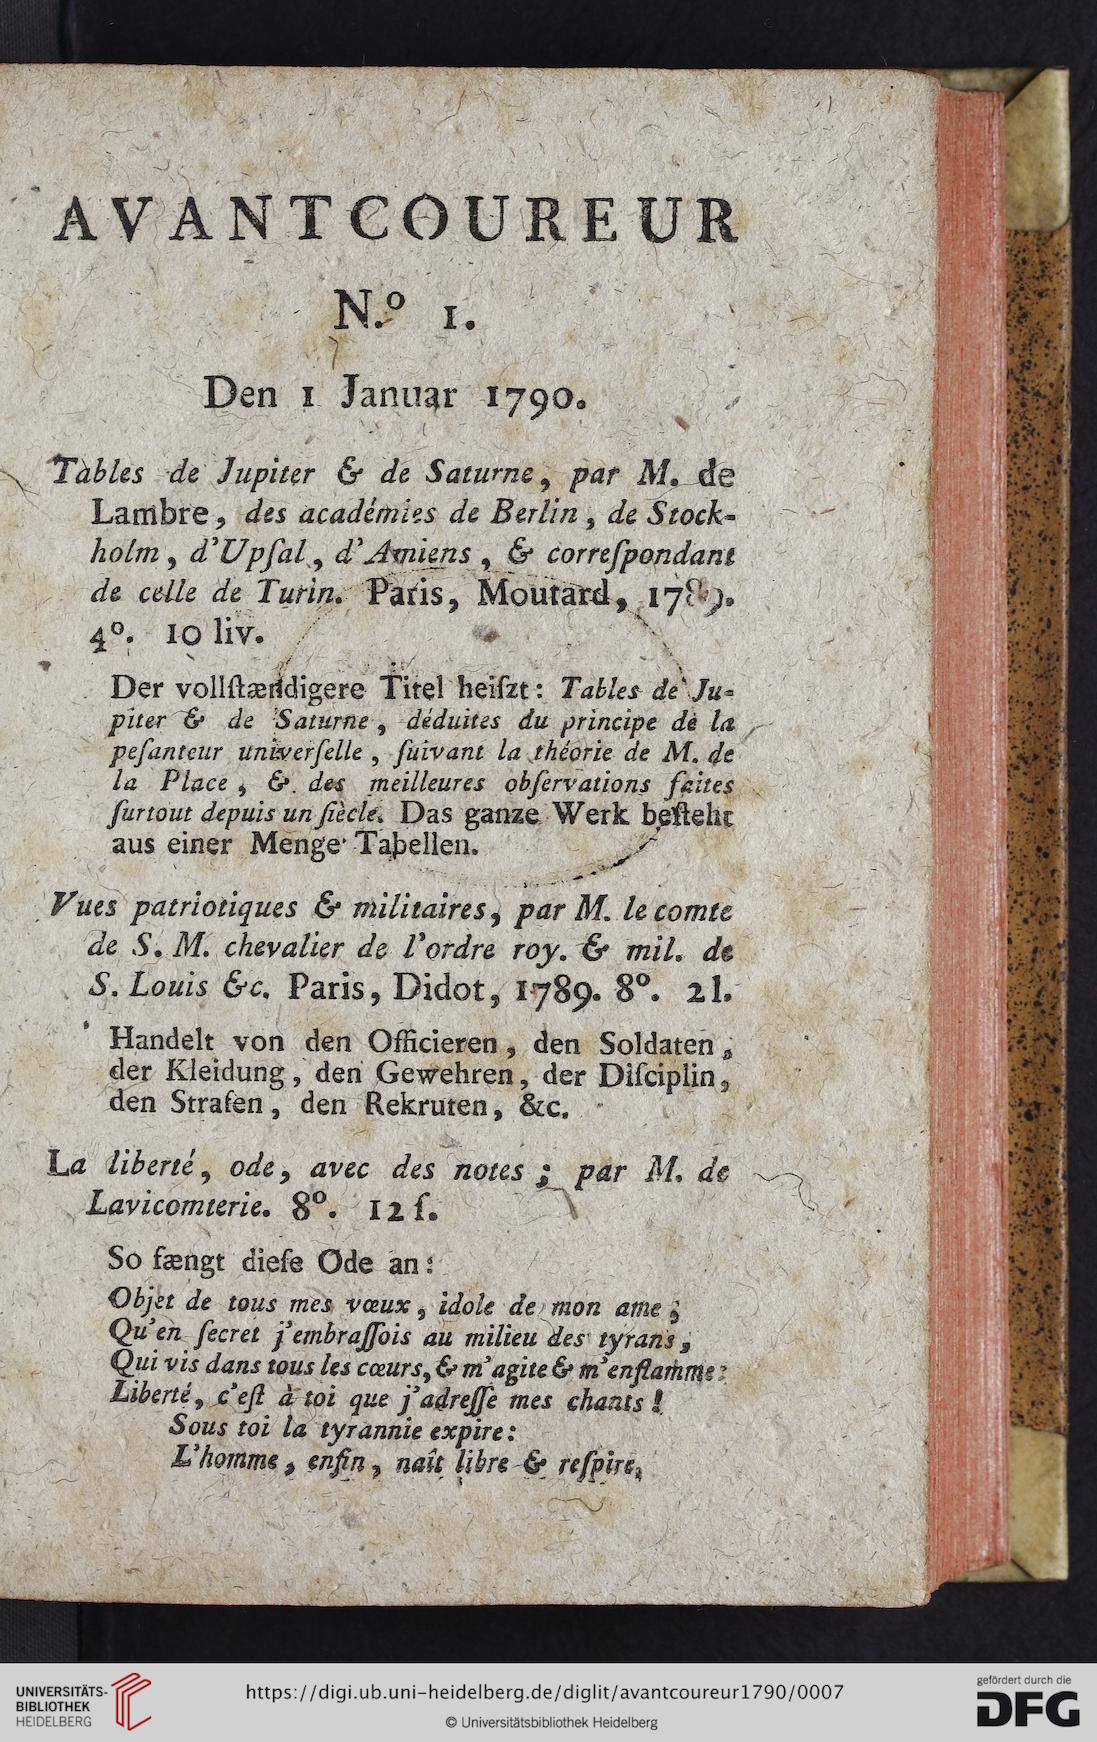 AVANTCOUREUR
N.º 1.
Den 1 Januar 1790.
Tables de Jupiter & de Saturne, par M. de
Lambre, des académies de Berlin, de Stock-
holm, d'Upſal, d'Amiens, & correſpondant
de celle de Turin. Paris, Moutard, 1789.
4º. 10 liv.
Der vollſtændigere Titel heiſzt: Tables de Ju-
piter & de Saturne, déduites du principe de la
peſanteur univerſelle, ſuivant la théorie de M. de
la Place, & des meilleures obſervations faites
ſurtout depuis un ſiècle. Das ganze Werk beſteht
aus einer Menge Tabellen.
Vues patriotiques & militaires, par M. le comte
de S. M. chevalier de l'ordre roy. & mil. de
S. Louis &c. Paris, Didot, 1789. 8º. 2 l.
Handelt von den Officieren, den Soldaten,
der Kleidung, den Gewehren, der Diſciplin,
den Strafen, den Rekruten, &c.
La liberté, ode, avec des notes; par M. de
Lavicomterie. 8º. 12 ſ.
So fængt dieſe Ode an:
Objet de tous mes vœux, idole de mon ame;
Qu'en ſecret j'embraſſois au milieu des tyrans,
Qui vis dans tous les cœurs, & m'agite & m'enflamme:
Liberté, c'eſt à toi que j'adreſſe mes chants!
Sous toi la tyrannie expire:
L'homme, enfin, naît libre & reſpire,
UNIVERSITÄTS-
BIBLIOTHEK
HEIDELBERG
https://digi.ub.uni-heidelberg.de/diglit/avantcoureur1790/0007
© Universitätsbibliothek Heidelberg
gefördert durch die
DFG